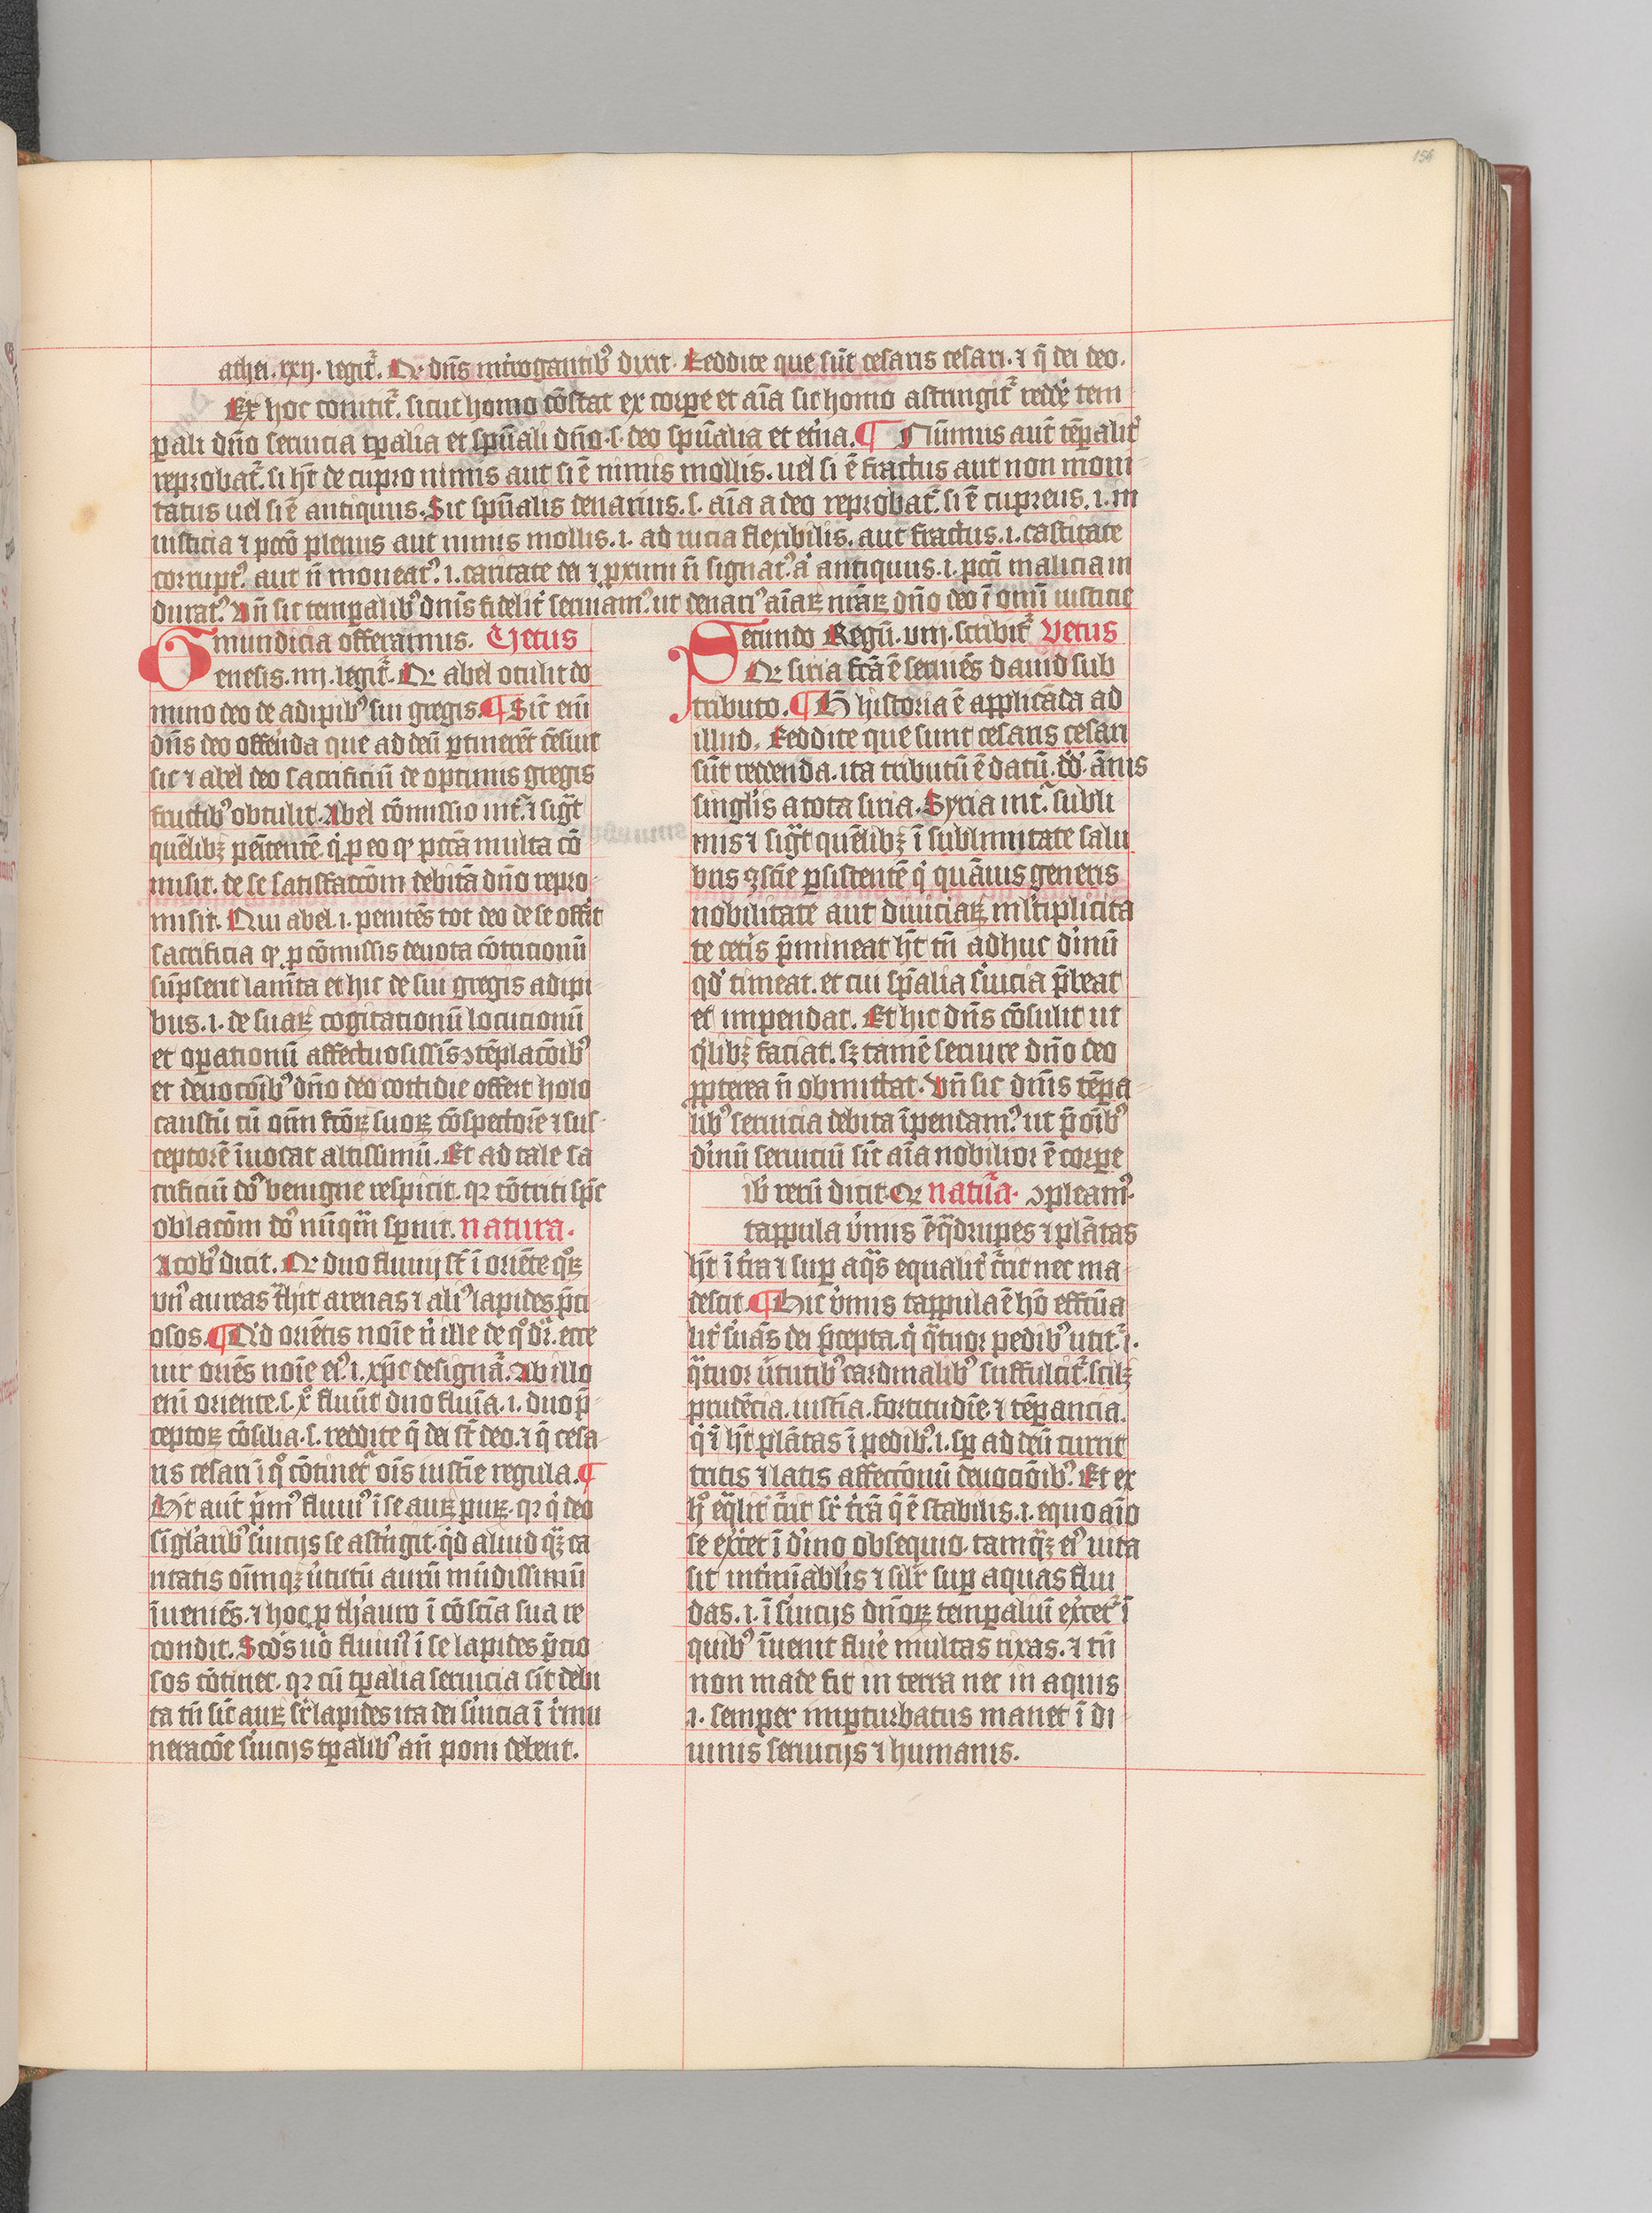 156
athei . xxij . legit᷑ . Qr dn̄s int̾rogantib⁹ dixit . Reddite que sūt cesaris cesari . ⁊ q̄ dei deo .
Ex hoc convītit᷑ . sicut homo cōstat ex corpore et aīa sic homo astringit᷑ redde᷑ tem
ꝑali dn̄o seruicia tꝑalia et spūali dn̄o . s . deo spūalia et et̾na . ¶ Nūmus aut̄ tēꝑalit᷑
reprobat᷑ . si hꝫ de cupro nimis aut si ē nimis mollis . uel si ē fractus aut non mone
tatus uel si ē antiquus . Sic spūalis denarius . s . aīa a deo reprobat᷑ . si ē cupreus . i . in
iusticia ⁊ pctō plenus aut nimis mollis . i . ad uicia flexibilis . aut fractus . i . castitate
corrupt⁹ aut n̄ moneat⁹ . i . caritate dei ⁊ ꝓximi n̄ signat⁹ aͥ antiquus . i . pctī malicia in
durat⁹ Vn̄ sic temꝑalib⁹ dn̄is fidelit̾ seruiam⁹ . ut denari⁹ aīaꝝ nr̄aꝝ dn̄o deo ī omī iusticie
mundicia offeramus . Vetus
Genesis . iiij . legit᷑ . Qr abel optulit do
mino deo de adipib⁹ sui gregis . ¶ Sic̄ enī
dn̄s deo offenda que ad deū ꝑtinerēt cēsuit
sic ⁊ abel deo sacrificiū de optimis gregis
fructib⁹ obtulit . Abel cōmissio int̾ ⁊ sigᷓt
quēlibꝫ pēitentē q̇ ꝑ eo qꝛ pctā multa cō
misit . de se satisfactōm debitā dn̄o repro
misit . Qui abel . i . penitēs tot deo de se offe᷑t
sacrificia qꝛ ꝓ cōmissis deuota cōtricionū
sūpserit lam̄ta et hic de sui gregis adipi
bus . i . de suaꝝ cogitacionū locucionū
et oꝑationū affectuosissīs ɔtēplacōib⁹
et deuocōib⁹ dn̄o deo cottidie offert holo
caustū cū om̄ fcōꝝ suoꝝ cōspectorē ⁊ sus
ceptorē īuocat altissimū . Et ad tale sa
crificiū do⁹ benigne respicit . qꝛ cōtriti spc̄
oblacōm do⁹ nūqᷓm spnit . natura .
Iacob⁹ dicit . Qr duo fluuij sᷓt ī oriēte qͦꝝ
vn⁹ aureas tᷓhit arenas ⁊ ali⁹ lapides p̄ci
osos . ¶ Qd oriētis noīe n̄ ille de qͦ dr̄ . ecce
uir oriēs noīe ei⁹ . i . xp̄c designat᷑ . Ab illo
enī oriente . s . xͦ fluūt duo fluuīa . i . duo p̄
ceptoꝝ cōsilia . s . reddite q̄ dei sᷓt deo . ⁊ q̄ cesa
ris cesari ī qͦ cōtinet᷑ oīs iustīe regula . ¶
Hic aut̄ p̄m⁹ fluui⁹ ī se auꝝ puꝝ . qꝛ q̇ deo
sīglarib⁹ s̾uicijs se astrīgit . qd aliud qᷓꝫ ca
ritatis oīmqꝫ v̾tutū aurū mūdissimū
īueniēs . ⁊ hoc ꝓ thauro ī cōsciā sua re
condit . Scd̄s uͦ fluui⁹ ī se lapides p̄cio
sos cōtinet . qꝛ cū tꝑalia seruicia sīt debi
ta tn̄ sic̄ auꝝ sꝛ̄ lapides ita dei s̾uicia ī r̾mu
neracōe s̾uicijs tꝑalib⁹ an̄ poni debent .
Secundo Regū . viij . scribit᷑ Vetus
Qr siria fcā ē seruiēs dauid sub
tributo . ¶ H̄ historia ē applicāda ad
illud . Reddite que sunt cesaris cesari
sūt reddenda . ita tributū ē datū . dd̄ . ānis
singl̾is a tota siria . Syria int᷑ subli
mis ⁊ sigᷓt quēlibꝫ ī sublimitate salu
bris ɔsc̄ie ꝑsistentē q̇ quāuis generis
nobilitate aut diuiciaꝝ ml̾tiplicita
te cet̾is p̄mineat hꝫ tn̄ adhuc d̾inū
qd̾ timeat . et cui spālia s̾uicia p̄beat
et impendat . Et hic dn̄s cōsulit ut
q̾libꝫ faciat . sꝫ tamē seruire dn̄o deo
ꝓpterea n̄ obmittat . Vn̄ sic dn̄is tēꝑa
lib⁹ seruicia debita īpendam⁹ . ut p̄ oīb⁹
d̾inū seruiciū sic̄ aīa nobilior ē corꝑe
ib̾ rerū dicit . Qr natura . ɔpleam⁹ .
tappula v̾mis ē qᷓdrupes ⁊ plātas
hꝫ ī t̾ra ⁊ suꝑ aqᷓs equalit̾ cᷓrit nec ma
descit . ¶ Hic v̾mis tappula ē hō effctūa
lit̾ s̾uās dei p̄cepta . q̇ qᷓtuor pedib⁹ utit᷑ . i .
qᷓtuor v̾tutib⁹ cardinalib⁹ suffulcit᷑ . scilꝫ
prudēcia . iustīa . fortitudīe . ⁊ tēꝑancia .
q̇ ī hꝫ plātas ī pedib⁹ . i . sꝑ ad deū currit
tritis ⁊ latis affectōnū deuociōib⁹ . Et ex
hͦ eqᷓlit̾ cᷓrit sꝛ̄ t̾rā q̄ ē stabilis . i . equo aīo
se ex̾cet ī d̾ino obsequio . tamqᷓꝫ ei⁹ uita
sit int̾miabl̾is ⁊ sil̾r suꝑ aquas flui
das . i . ī s̾uicijs dn̄oꝝ temꝑaliū ex̾cet᷑ ī
quib⁹ īuenit flue᷑ multas rixas . ⁊ tn̄
non made fit in terra nec in aquis
i . semper imꝑturbatus manet ī di
uinis seruicijs ⁊ humanis .